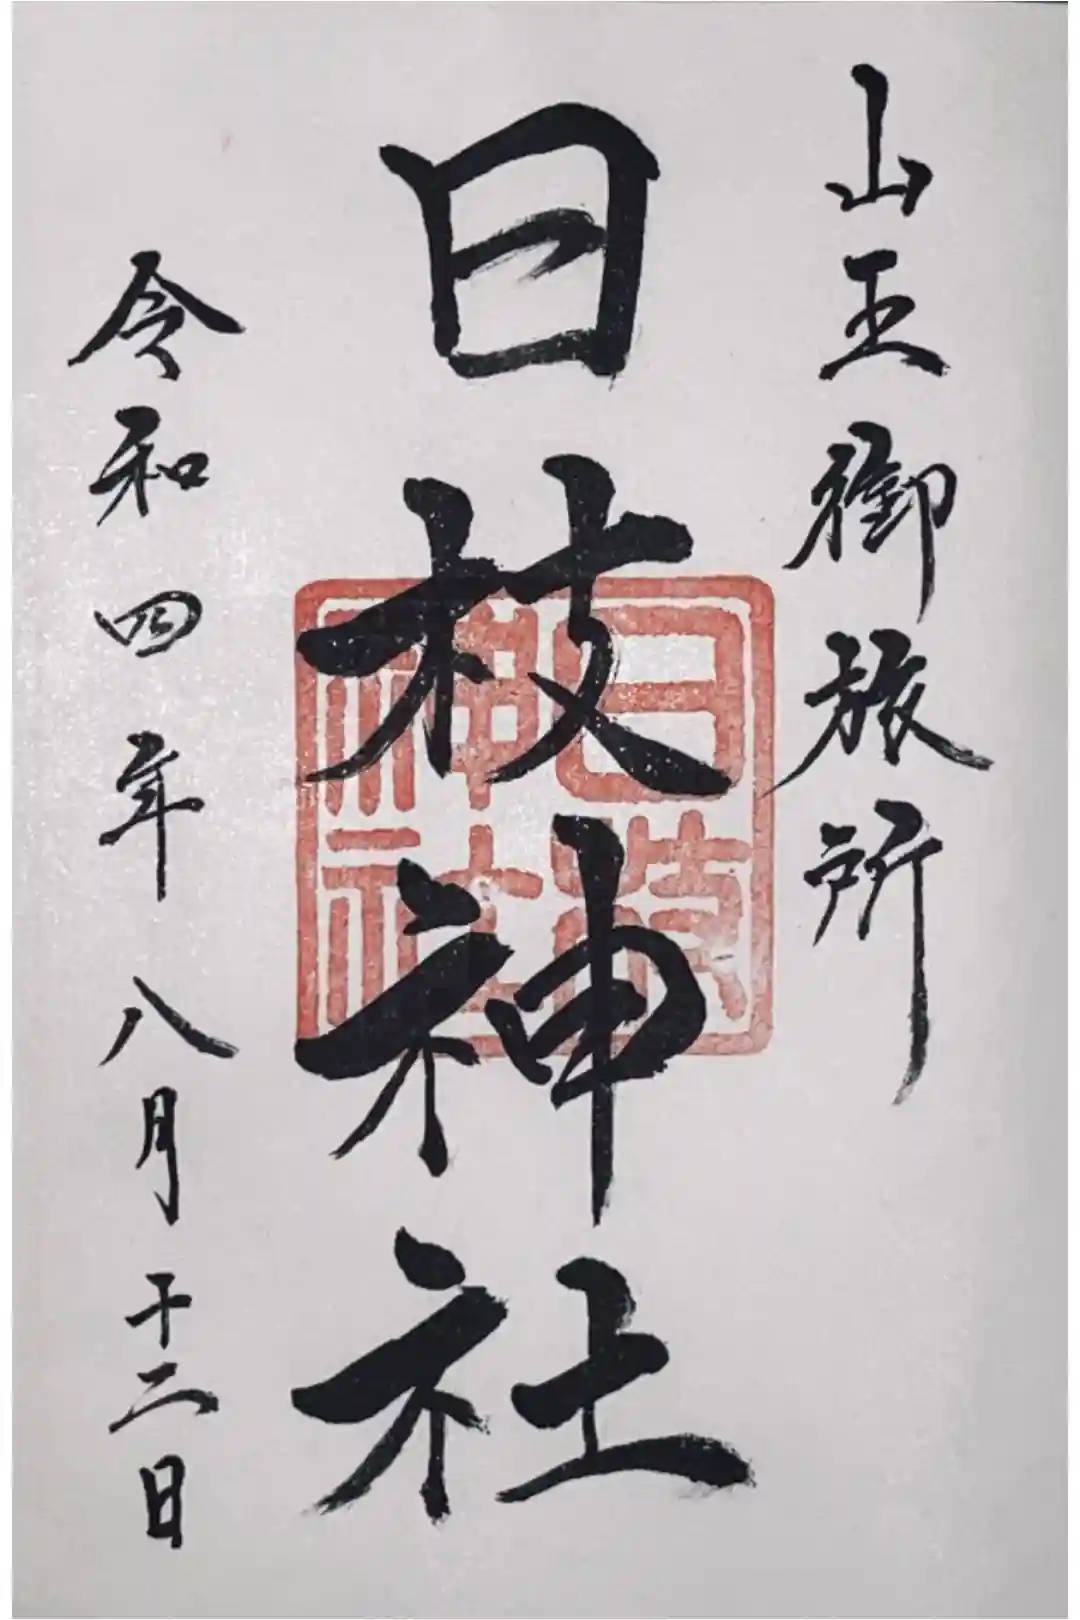 山王御旅所
日枝神社
日枝
神社
令和四年八月十二日